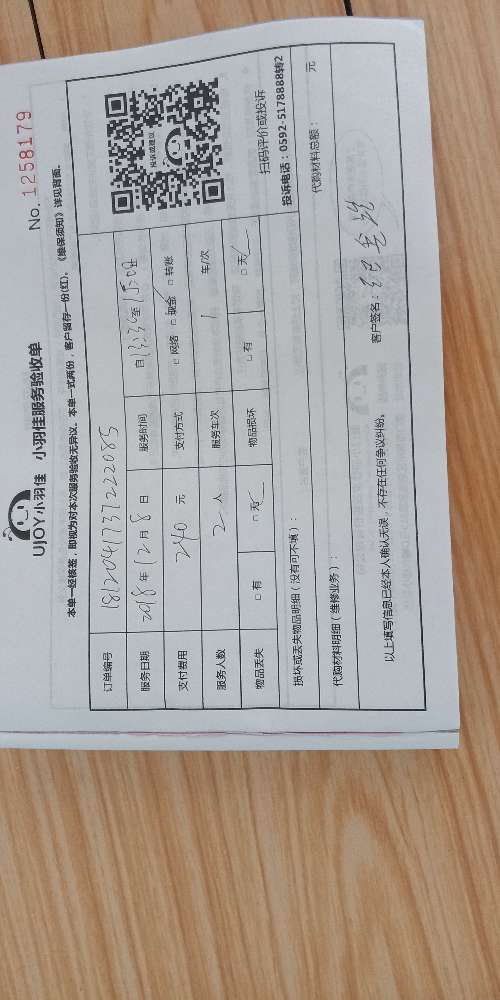 UJOY小羽佳 小羽佳服务验收单
No. 1258179
本单一经核签，即视为对本次服务验收无异议。本单一式两份，客户留存一份(红)。《维保须知》详见背面。
订单编号 181204173722085
服务日期 2018年12月8日 服务时间 自13:30至15:02
支付费用 240 元 支付方式 □ 网络 □ 现金 □ 转账
服务人数 2 人 服务车次 1 车/次
物品丢失 □ 有 □ 无 物品损坏 □ 有 □ 无
投诉或建议
扫码评价或投诉
投诉电话：0592-5178888转2
损坏或丢失物品明细（没有可不填）：
代购材料明细（维修业务）：
代购材料总额： 元
以上填写信息已经本人确认无误，不存在任何争议纠纷。
客户签名：